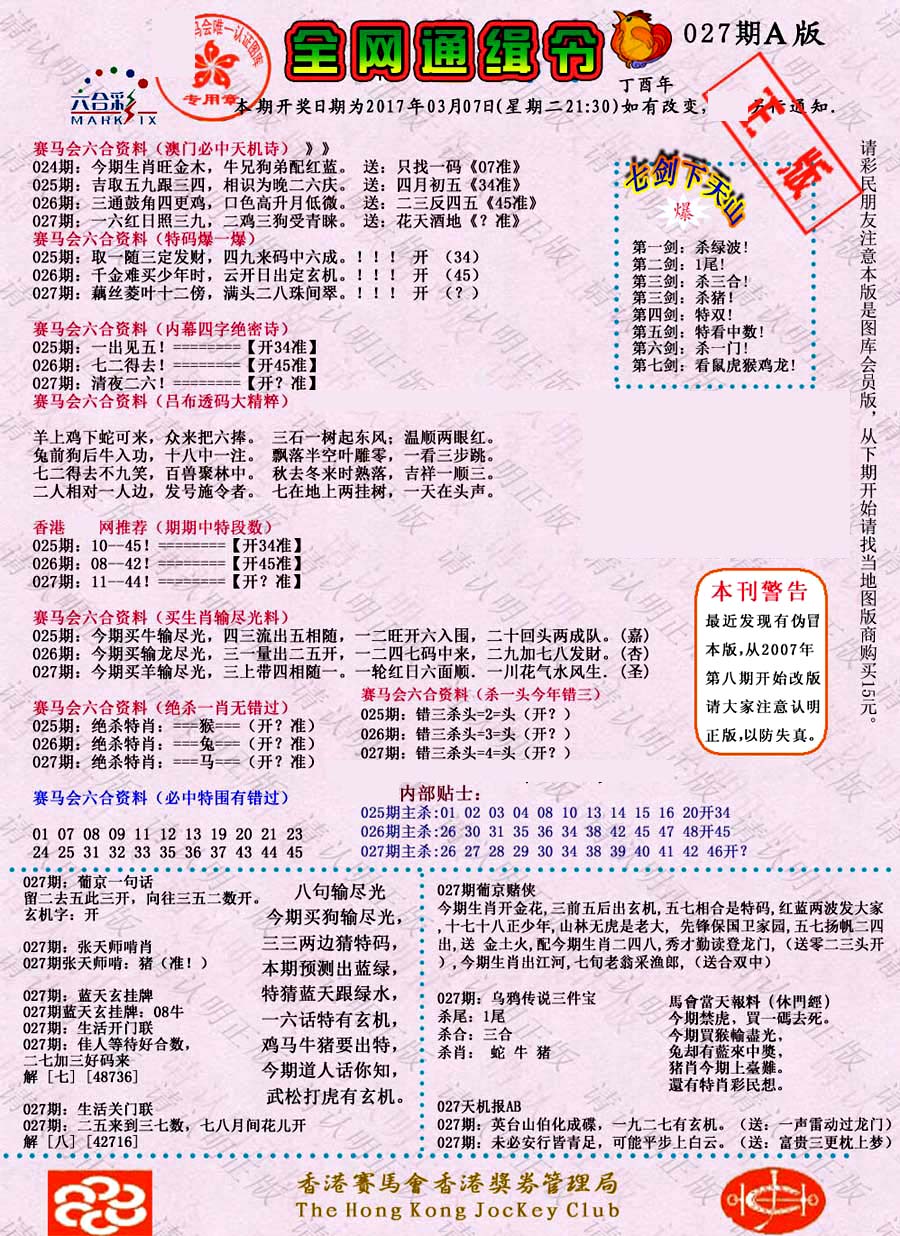 马会唯一认证图库
专用章
六合彩
MARK SIX
全网通缉令
027期A版
丁酉年
本期开奖日期为2017年03月07日(星期二21:30)如有改变, 另行通知.
正版
请彩民朋友注意本版是图库会员版，从下期开始请找当地图版商购买15元。
赛马会六合资料（澳门必中天机诗）》》
024期：今期生肖旺金木，牛兄狗弟配红蓝。 送：只找一码《07准》
025期：吉取五九跟三四，相识为晚二六庆。 送：四月初五《34准》
026期：三通鼓角四更鸡，口色高升月低微。 送：二三反四五《45准》
027期：一六红日照三九，二鸡三狗受青睐。 送：花天酒地《？准》
赛马会六合资料（特码爆一爆）
025期：取一随三定发财，四九来码中六成。！！！ 开 （34）
026期：千金难买少年时，云开日出定玄机。！！！ 开 （45）
027期：藕丝菱叶十二傍，满头二八珠间翠。！！！ 开 （？）
七剑下天山
爆
第一剑：杀绿波!
第二剑：1尾!
第三剑：杀三合!
第三剑：杀猪!
第四剑：特双!
第五剑：特看中数!
第六剑：杀一门!
第七剑：看鼠虎猴鸡龙!
赛马会六合资料（内幕四字绝密诗）
025期：一出见五！========【开34准】
026期：七二得去！========【开45准】
027期：清夜二六！========【开？准】
赛马会六合资料（吕布透码大精粹）
羊上鸡下蛇可来，众来把六捧。 三石一树起东风；温顺两眼红。
兔前狗后牛入功，十八中一注。 飘落半空叶雕零，一看三步跳。
七二得去不九笑，百兽聚林中。 秋去冬来时熟落，吉祥一顺三。
二人相对一人边，发号施令者。 七在地上两挂树，一天在头声。
香港 网推荐（期期中特段数）
025期：10--45！========【开34准】
026期：08--42！========【开45准】
027期：11--44！========【开？准】
赛马会六合资料（买生肖输尽光料）
025期：今期买牛输尽光，四三流出五相随，一二旺开六入围，二十回头两成队。(嘉)
026期：今期买输龙尽光，三一量出二五开，一二四七码中来，二九加七八发财。(杏)
027期：今期买羊输尽光，三上带四相随一。一轮红日六面顺．一川花气水风生．(圣)
本刊警告
最近发现有伪冒
本版,从2007年
第八期开始改版
请大家注意认明
正版,以防失真。
赛马会六合资料（绝杀一肖无错过）
025期：绝杀特肖：===猴===（开？准）
026期：绝杀特肖：===兔===（开？准）
027期：绝杀特肖：===马===（开？准）
赛马会六合资料（杀一头今年错三）
025期：错三杀头=2=头（开？）
026期：错三杀头=3=头（开？）
027期：错三杀头=4=头（开？）
赛马会六合资料（必中特围有错过）
01 07 08 09 11 12 13 19 20 21 23
24 25 31 32 33 35 36 37 43 44 45
内部贴士：
025期主杀:01 02 03 04 08 10 13 14 15 16 20开34
026期主杀:26 30 31 35 36 34 38 42 45 47 48开45
027期主杀:26 27 28 29 30 34 38 39 40 41 42 46开？
027期：葡京一句话
留二去五此三开，向往三五二数开。
玄机字：开
027期：张天师啃肖
027期张天师啃：猪（准！）
027期：蓝天玄挂牌
027期蓝天玄挂牌：08牛
027期：生活开门联
027期：佳人等待好合数，
二七加三好码来
解 [七] [48736]
027期：生活关门联
027期：二五来到三七数，七八月间花儿开
解 [八] [42716]
八句输尽光
今期买狗输尽光，
三三两边猜特码，
本期预测出蓝绿，
特猜蓝天跟绿水，
一六话特有玄机，
鸡马牛猪要出特，
今期道人话你知，
武松打虎有玄机。
027期葡京赌侠
今期生肖开金花,三前五后出玄机,五七相合是特码,红蓝两波发大家
,十七十八正少年,山林无虎是老大, 先锋保国卫家园,五七扬帆二四
出,送 金土火,配今期生肖二四八,秀才勤读登龙门,（送零二三头开
）,今期生肖出江河,七旬老翁采渔郎,（送合双中）
027期：乌鸦传说三件宝
杀尾：1尾
杀合：三合
杀肖： 蛇 牛 猪
馬會當天報料（休門經）
今期禁虎，買一碼去死。
今期買猴輸盡光，
兔却有藍來中獎，
猪肖今期上臺難。
還有特肖彩民想。
027天机报AB
027期：英台山伯化成碟，一九二七有玄机。（送：一声雷动过龙门）
027期：未必安行皆青足，可能平步上白云。（送：富贵三更枕上梦）
香港賽馬會香港獎券管理局
The Hong Kong JocKey Club